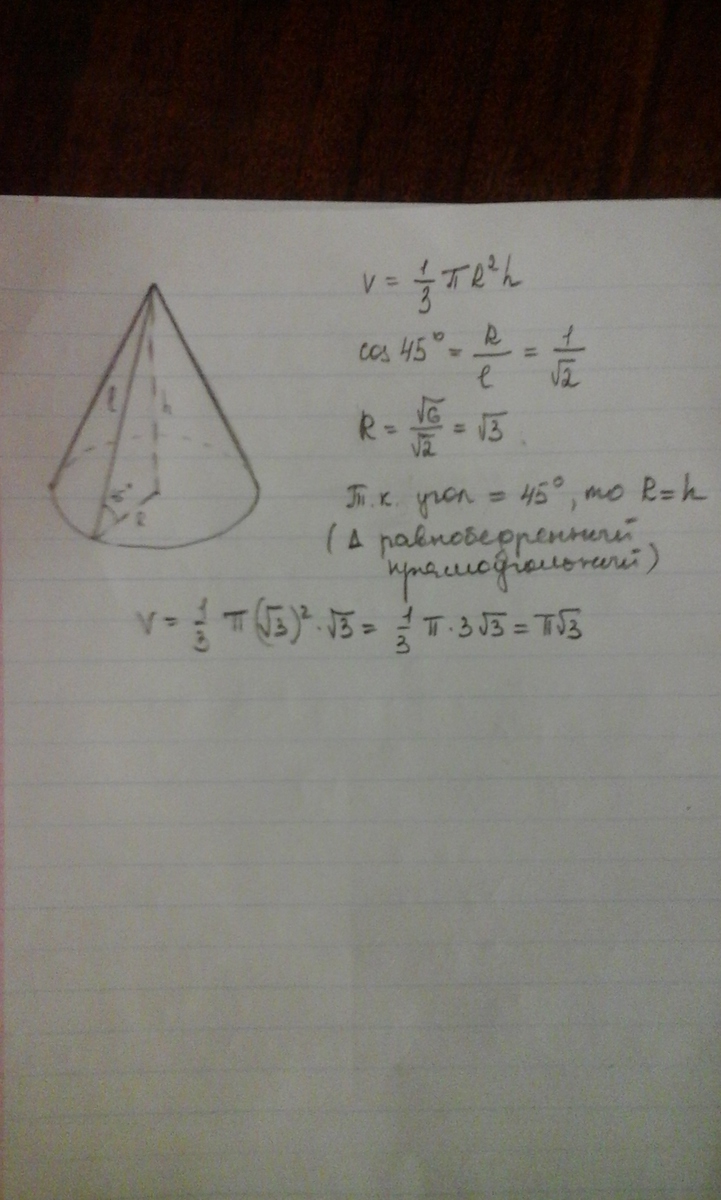 V = 1/3 π R² h
cos 45° = R/l = 1/√2
R = √6/√2 = √3
l
h
45°
R
Т.к. угол = 45°, то R = h
(Δ равнобедренный
прямоугольный)
V = 1/3 π (√3)² · √3 = 1/3 π · 3√3 = π√3